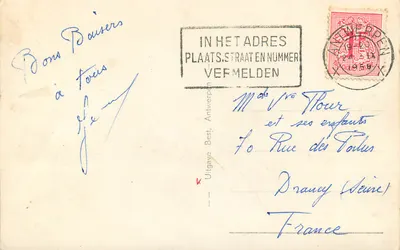 Bons Baisers
à tous
IN HET ADRES
PLAATS, STRAAT EN NUMMER
VERMELDEN
ANTWERPEN
1958
Uitgave Best, Antwerpen
Mde Vve
et ses enfants
70 Rue des
Drancy (Seine)
France